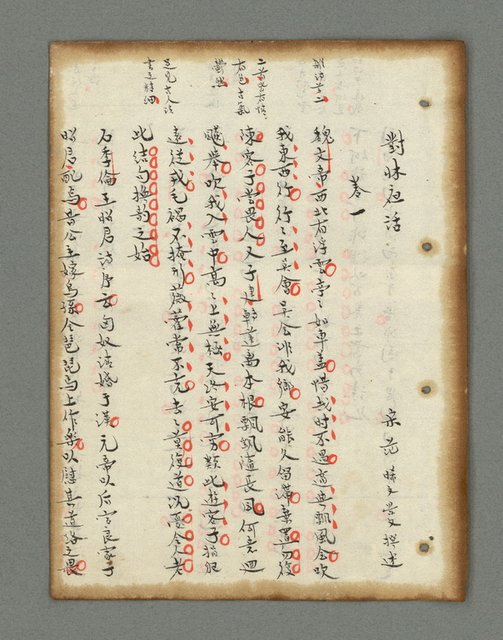 對牀夜話
宋 范晞文景文撰述
卷一
魏文帝西北有浮雲亭〻如車蓋惜哉時不遇適與飄風會吹
我東西行行〻至吳會吳會非我鄉安能久留滯棄置勿復
陳客子常畏人又子建轉蓬離本根飄颻隨長風何意迴
飆舉吹我入雲中高〻上無極天路安可窮類此遊客子捐軀
遠從戎毛褐不掩形薇藿常不充去〻莫復道沉憂令人老
此結句換韻之始
石季倫王昭君詩序云匈奴請婚于漢元帝以后宮良家子
昭君配焉昔公主嫁烏孫令琵琶馬上作樂以慰其道路之